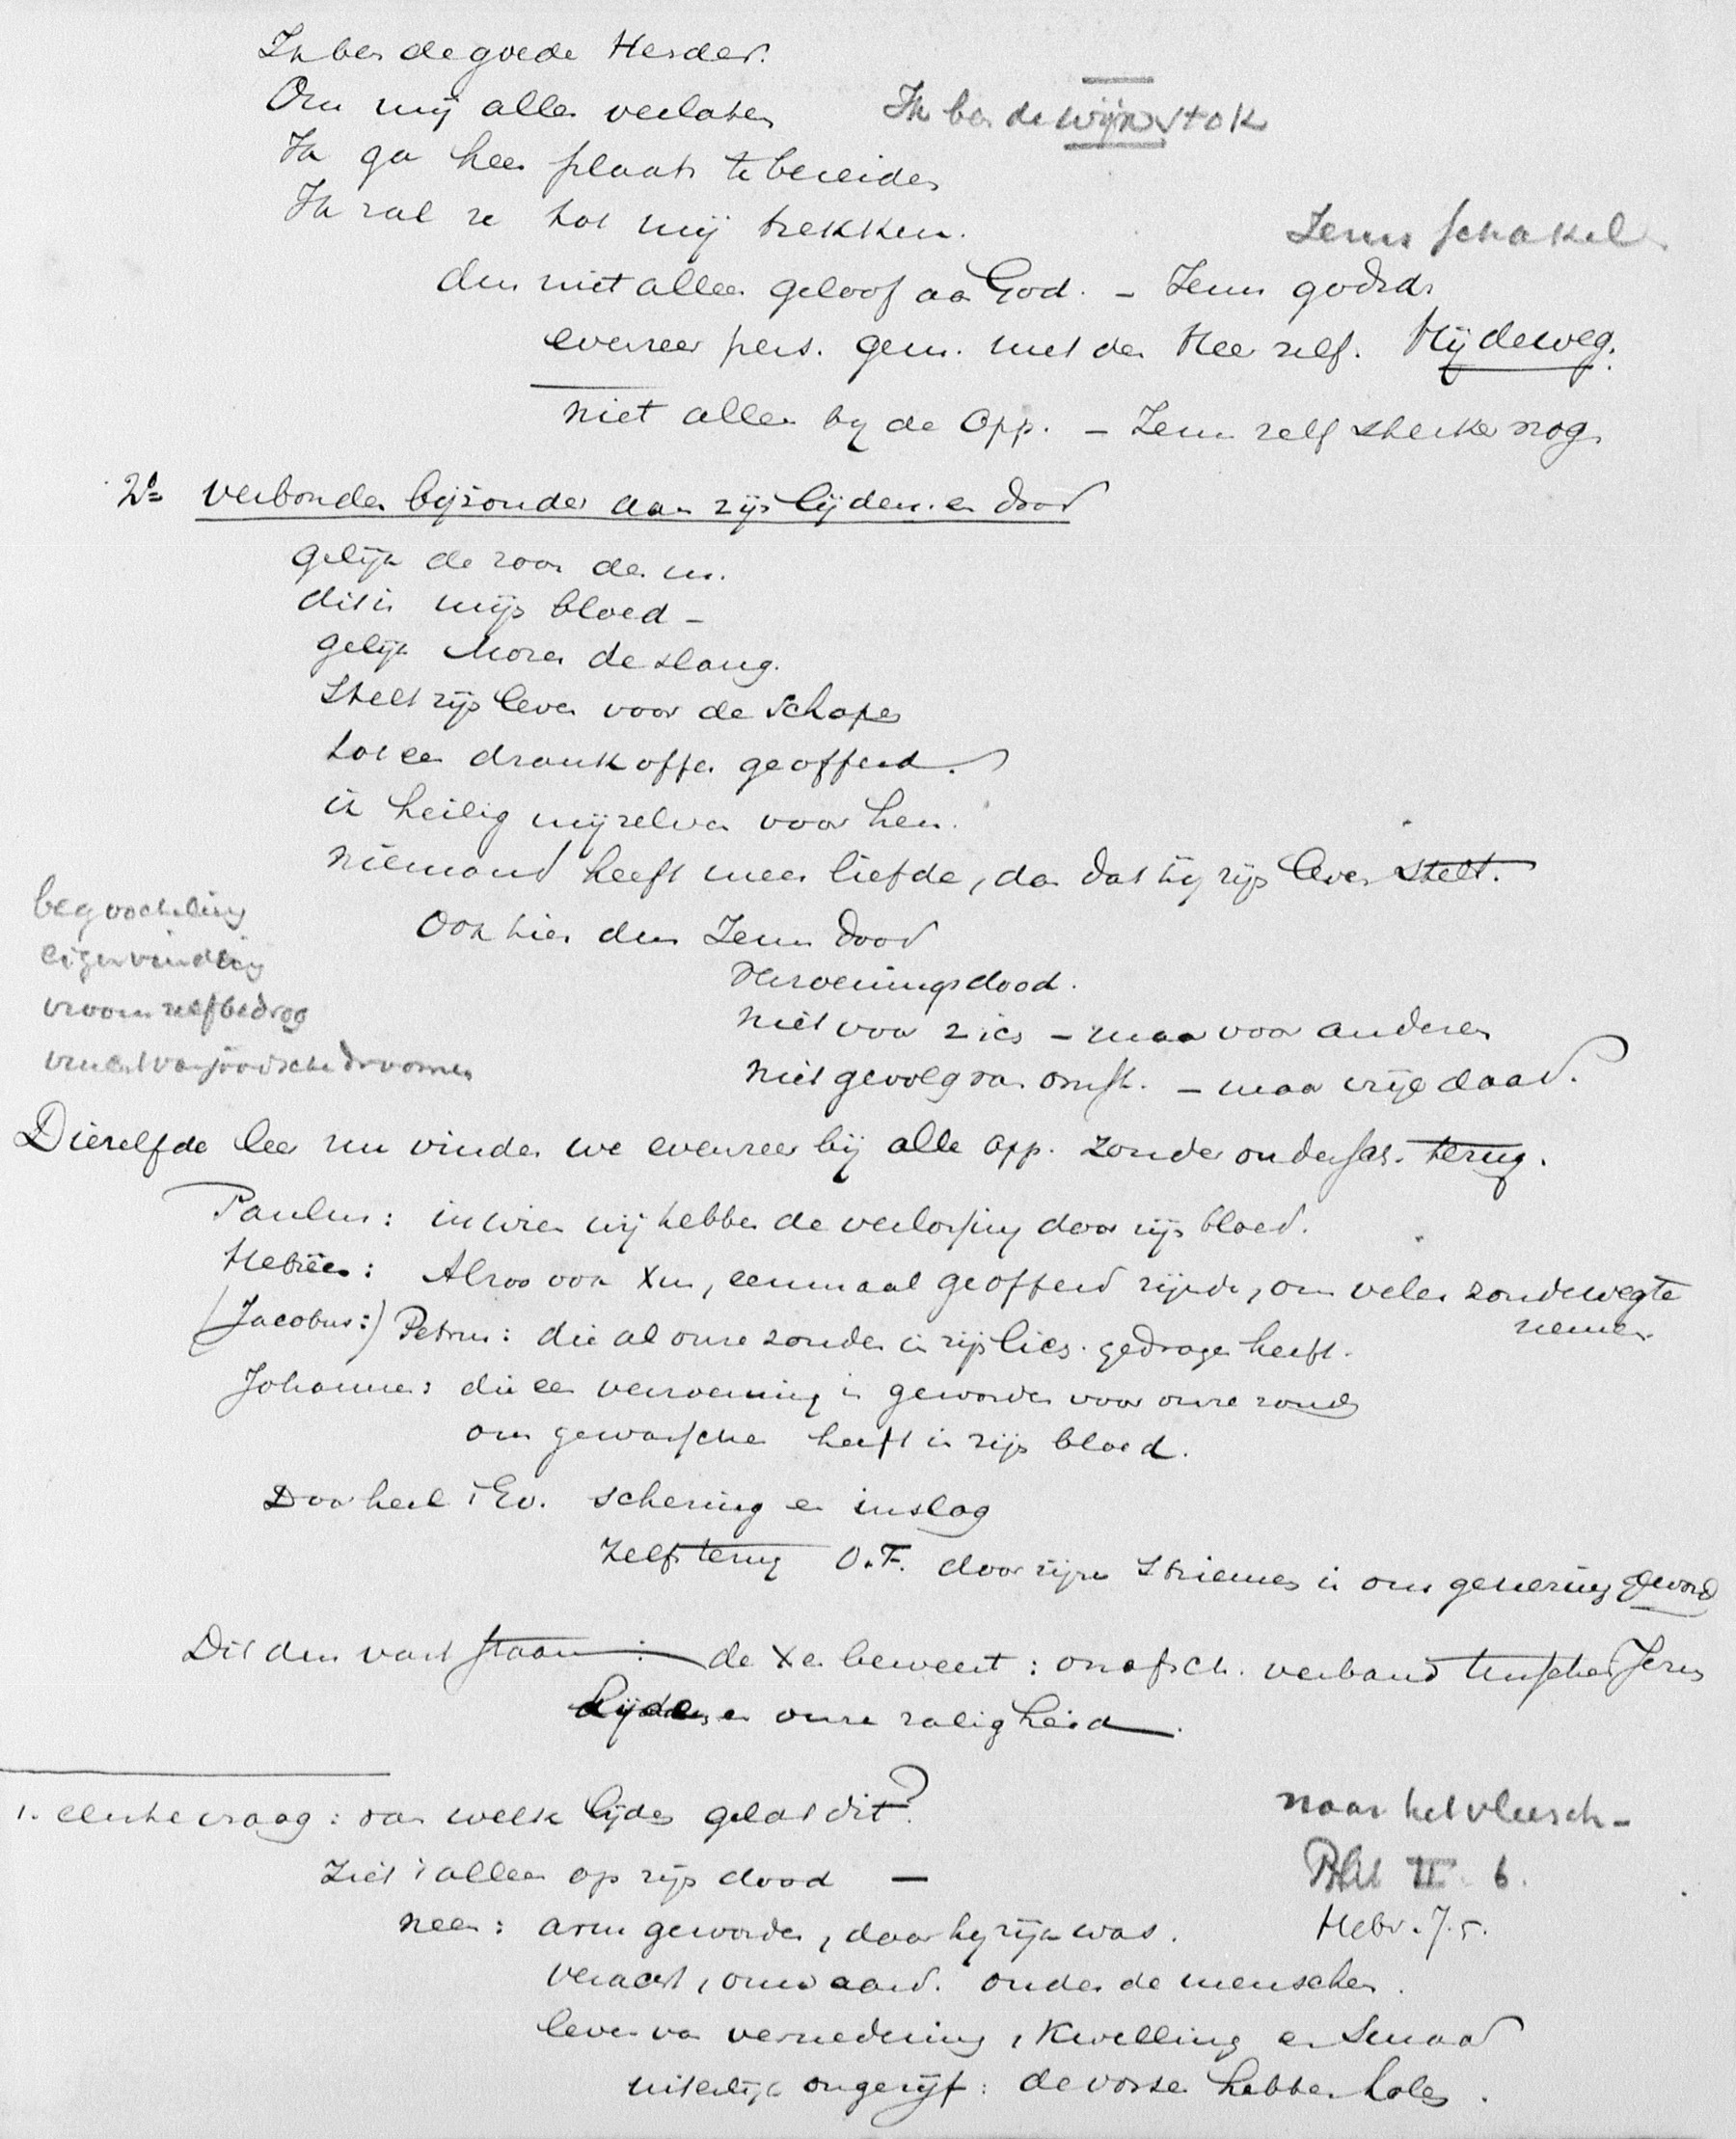 Ik ben de goede Herder.
Om mij alles verlaten
Ik ben de wijnstok
Ik ga heen plaats te bereiden
Ik zal ze tot mij trekken.
Jezus schakel
dus niet alleen geloof aan God. – Jezus godsd.
evenzeer pers. gem. met den Heer zelf. Hij de weg.
niet alleen by de App. – Jezus zelf sterker nog.
2º verbonden bijzonder aan zijn lijden en dood
gelijk de zoon des m.
dit is mijn bloed –
gelijk Mozes de slang.
Stelt zijn leven voor de schapen
tot een drankoffer geofferd.
ik heilig mijzelven voor hen.
niemand heeft meer liefde, dan dat hij zijn leven stelt.
begoocheling
eigenvinding
vroom zelfbedrog
vrucht van joodsche droomen
Ook hier dus Jezus dood
Verzoeningsdood.
niet voor zich – maar voor anderen
niet gevolg van omst. – maar vrije daad.
Diezelfde leer nu vinden we evenzeer bij alle app. zonder ondersch. terug.
Paulus: in wien wij hebben de verlossing door zijn bloed.
Hebreën: Alzoo ook Xus, eenmaal geofferd zijnde, om veler zonden weg te
nemen.
(Jacobus:) Petrus: die al onze zonden in zijn lich. gedragen heeft.
Johannes: die een verzoening is geworden voor onze zonden
ons gewasschen heeft in zijn bloed.
Door heel 't Ev. schering en inslag
Zelfs terug O.T. door zijne striemen is ons genezing geword
Dit dus vast staan: de Xen beweert: onafsch. verband tusschen Jezus
lijden en onze zaligheid.
1. eerste vraag: van welk lijden geldt dit?
Ziet 't alleen op zijn dood –
naar het vleesch –
Phil II 6.
Hebr. 7.5.
neen: arm geworden, daar hij rijk was.
veracht, onwaard. onder de menschen.
leven van vernedering, kwelling en smaad
uiterlijk ongerijf: de vossen hebben holen.